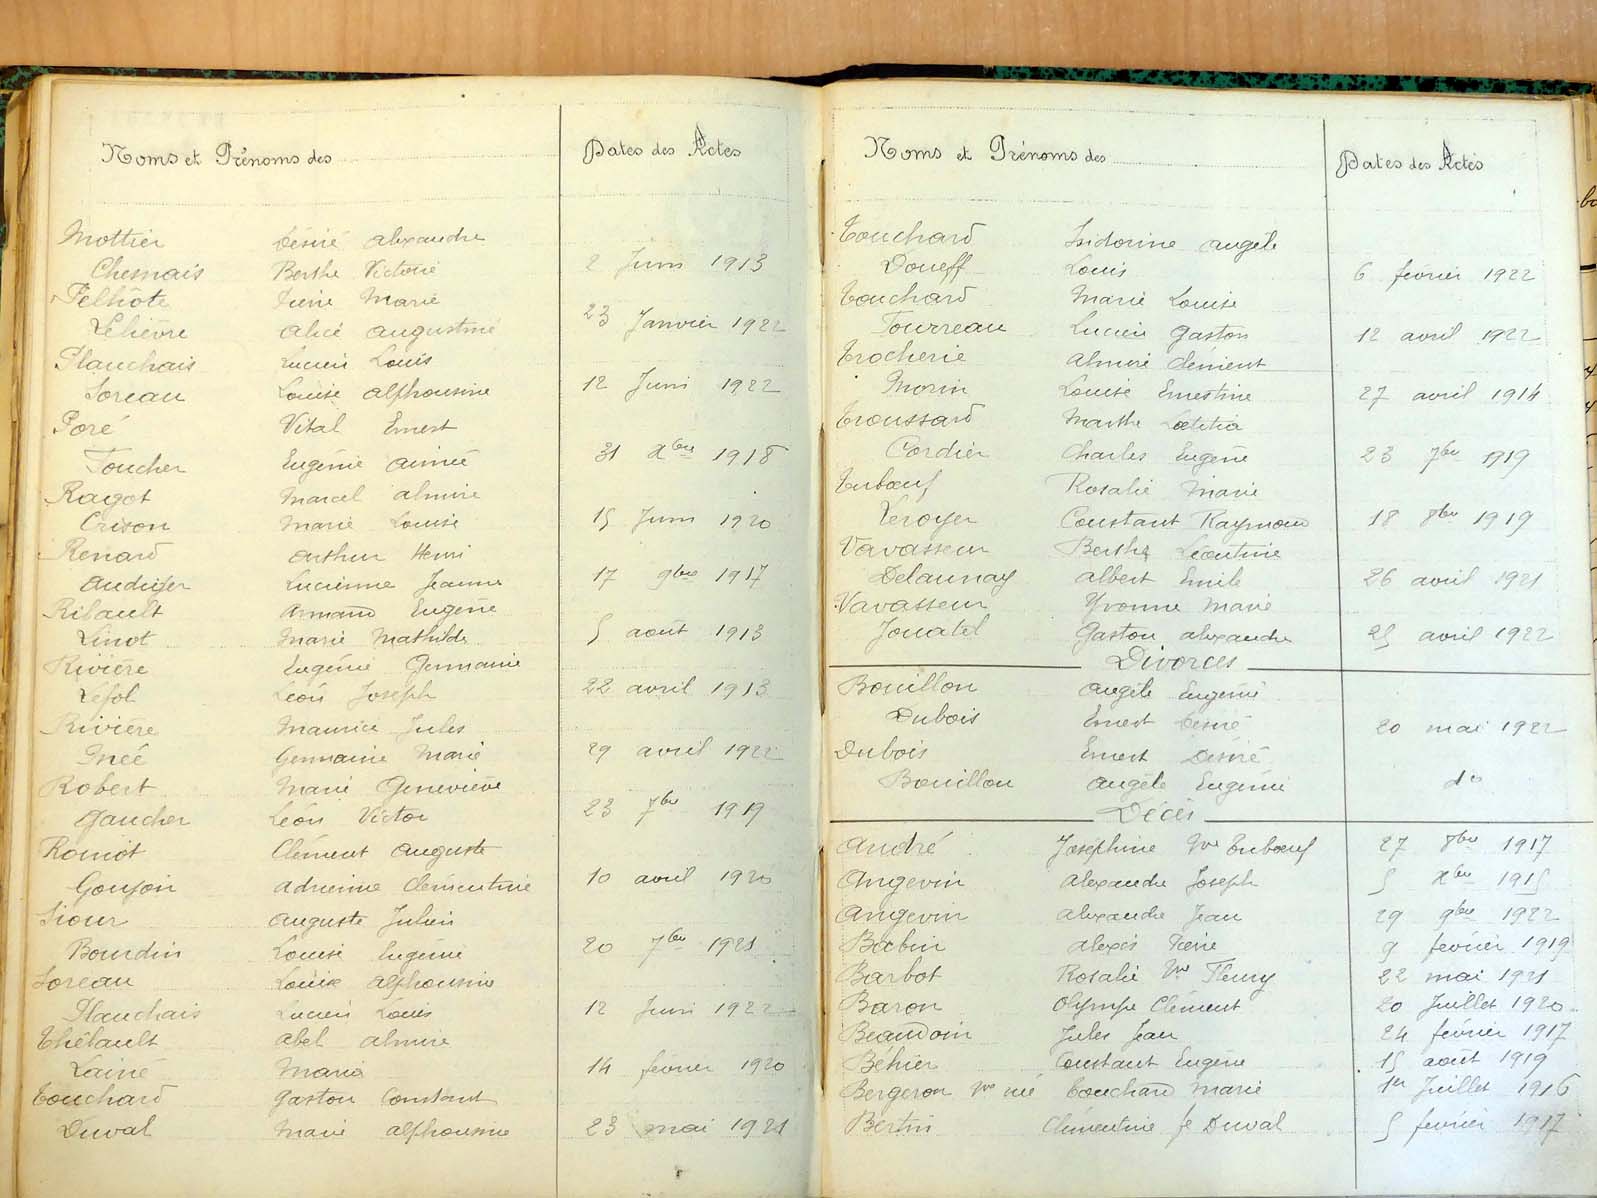 Noms et Prénoms des
Dates des Actes
Mottier Désiré Alexandre
Chesnais Berthe Victorie 2 Juin 1913
Pelhôte Pierre Marie
Lelièvre Alice Augustine 23 Janvier 1922
Plauchais Lucien Louis
Soreau Louise Alphonsine 12 Juin 1922
Poré Vital Ernest
Foucher Eugénie Aimée 31 Xbre 1918
Ragot Marcel Almire
Crison Marie Louise 15 Juin 1920
Renard Arthur Henri
Audiger Lucienne Jeanne 17 9bre 1917
Ribault Armand Eugène
Linot Marie Mathilde 5 août 1913
Rivière Eugénie Germaine
Lefol Léon Joseph 22 avril 1913
Rivière Maurice Jules
Germaine Marie 29 avril 1922
Robert Marie Geneviève
Gaucher Léon Victor 23 7bre 1919
Romet Clément Auguste
Goujon Adrienne Clémentine 10 avril 1920
Siour Auguste Julien
Bourdin Louise Eugénie 20 7bre 1921
Soreau Louise Alphonsine
Plauchais Lucien Louis 12 Juin 1922
Thébault Abel Almire
Lainé Maria 14 février 1920
Touchard Gaston Constant
Duval Marie Alphonsine 23 mai 1921
Noms et Prénoms des
Dates des Actes
Touchard Isidorine Angèle
Doueff Louis 6 février 1922
Touchard Marie Louise
Tourreau Lucien Gaston 12 avril 1922
Trocherie Almire Clément
Morin Louise Ernestine 27 avril 1914
Troussard Marthe Lætitia
Cordier Charles Eugène 23 7bre 1919
Tubœuf Rosalie Marie
Leroyer Constant Raymond 18 8bre 1919
Vavasseur Berthe Léontine
Delaunay Albert Emile 26 avril 1921
Vavasseur Yvonne Marie
Jouatel Gaston Alexandre 25 avril 1922
Divorces
Bouillon Angèle Eugénie
Dubois Ernest Désiré 20 mai 1922
Dubois Ernest Désiré
Bouillon Angèle Eugénie do
Décès
André Joséphine Vve Tubœuf 27 8bre 1917
Angevin Alexandre Joseph 5 Xbre 1915
Angevin Alexandre Jean 29 9bre 1922
Babin Alexis Pierre 9 février 1919
Barbot Rosalie Vve Fleury 22 mai 1921
Baron Olympe Clément 20 Juillet 1920
Beaudoin Jules Jean 24 février 1917
Béhier Constant Eugène 15 août 1919
Bergeron Vve née Touchard Marie 1er Juillet 1916
Bertin Clémentine fe Duval 5 février 1917